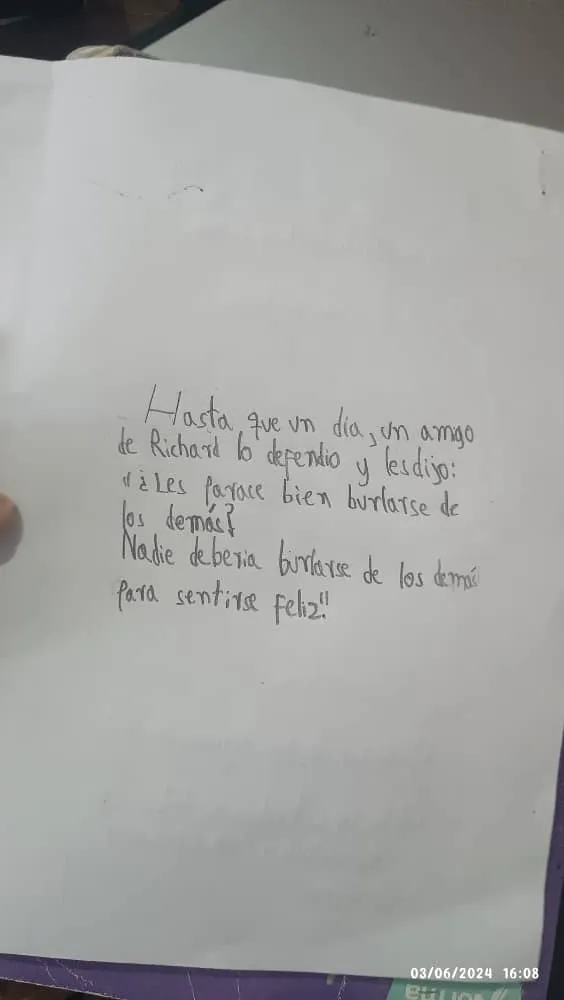 Hasta que un día, un amigo
de Richard lo defendio y les dijo:
"¿Les parace bien burlarse de
los demás?
Nadie deberia burlarse de los demás
para sentirse feliz."
03/06/2024 16:08